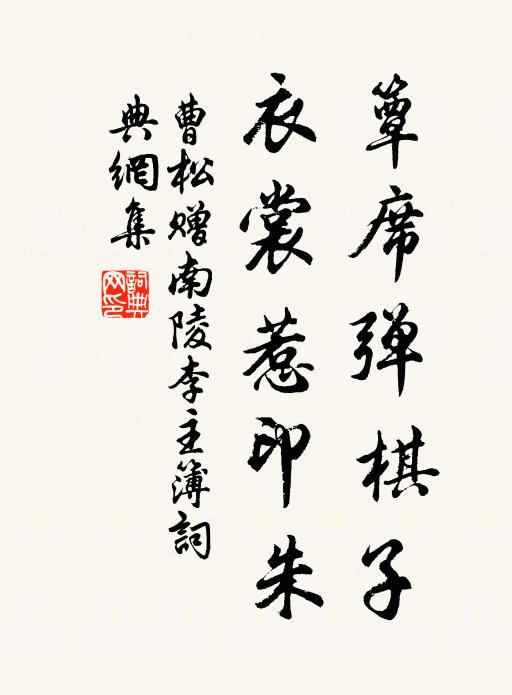 簟席弹棋子
衣裳惹印朱
曹松赠南陵李主簿詞
典網集
詞典网印